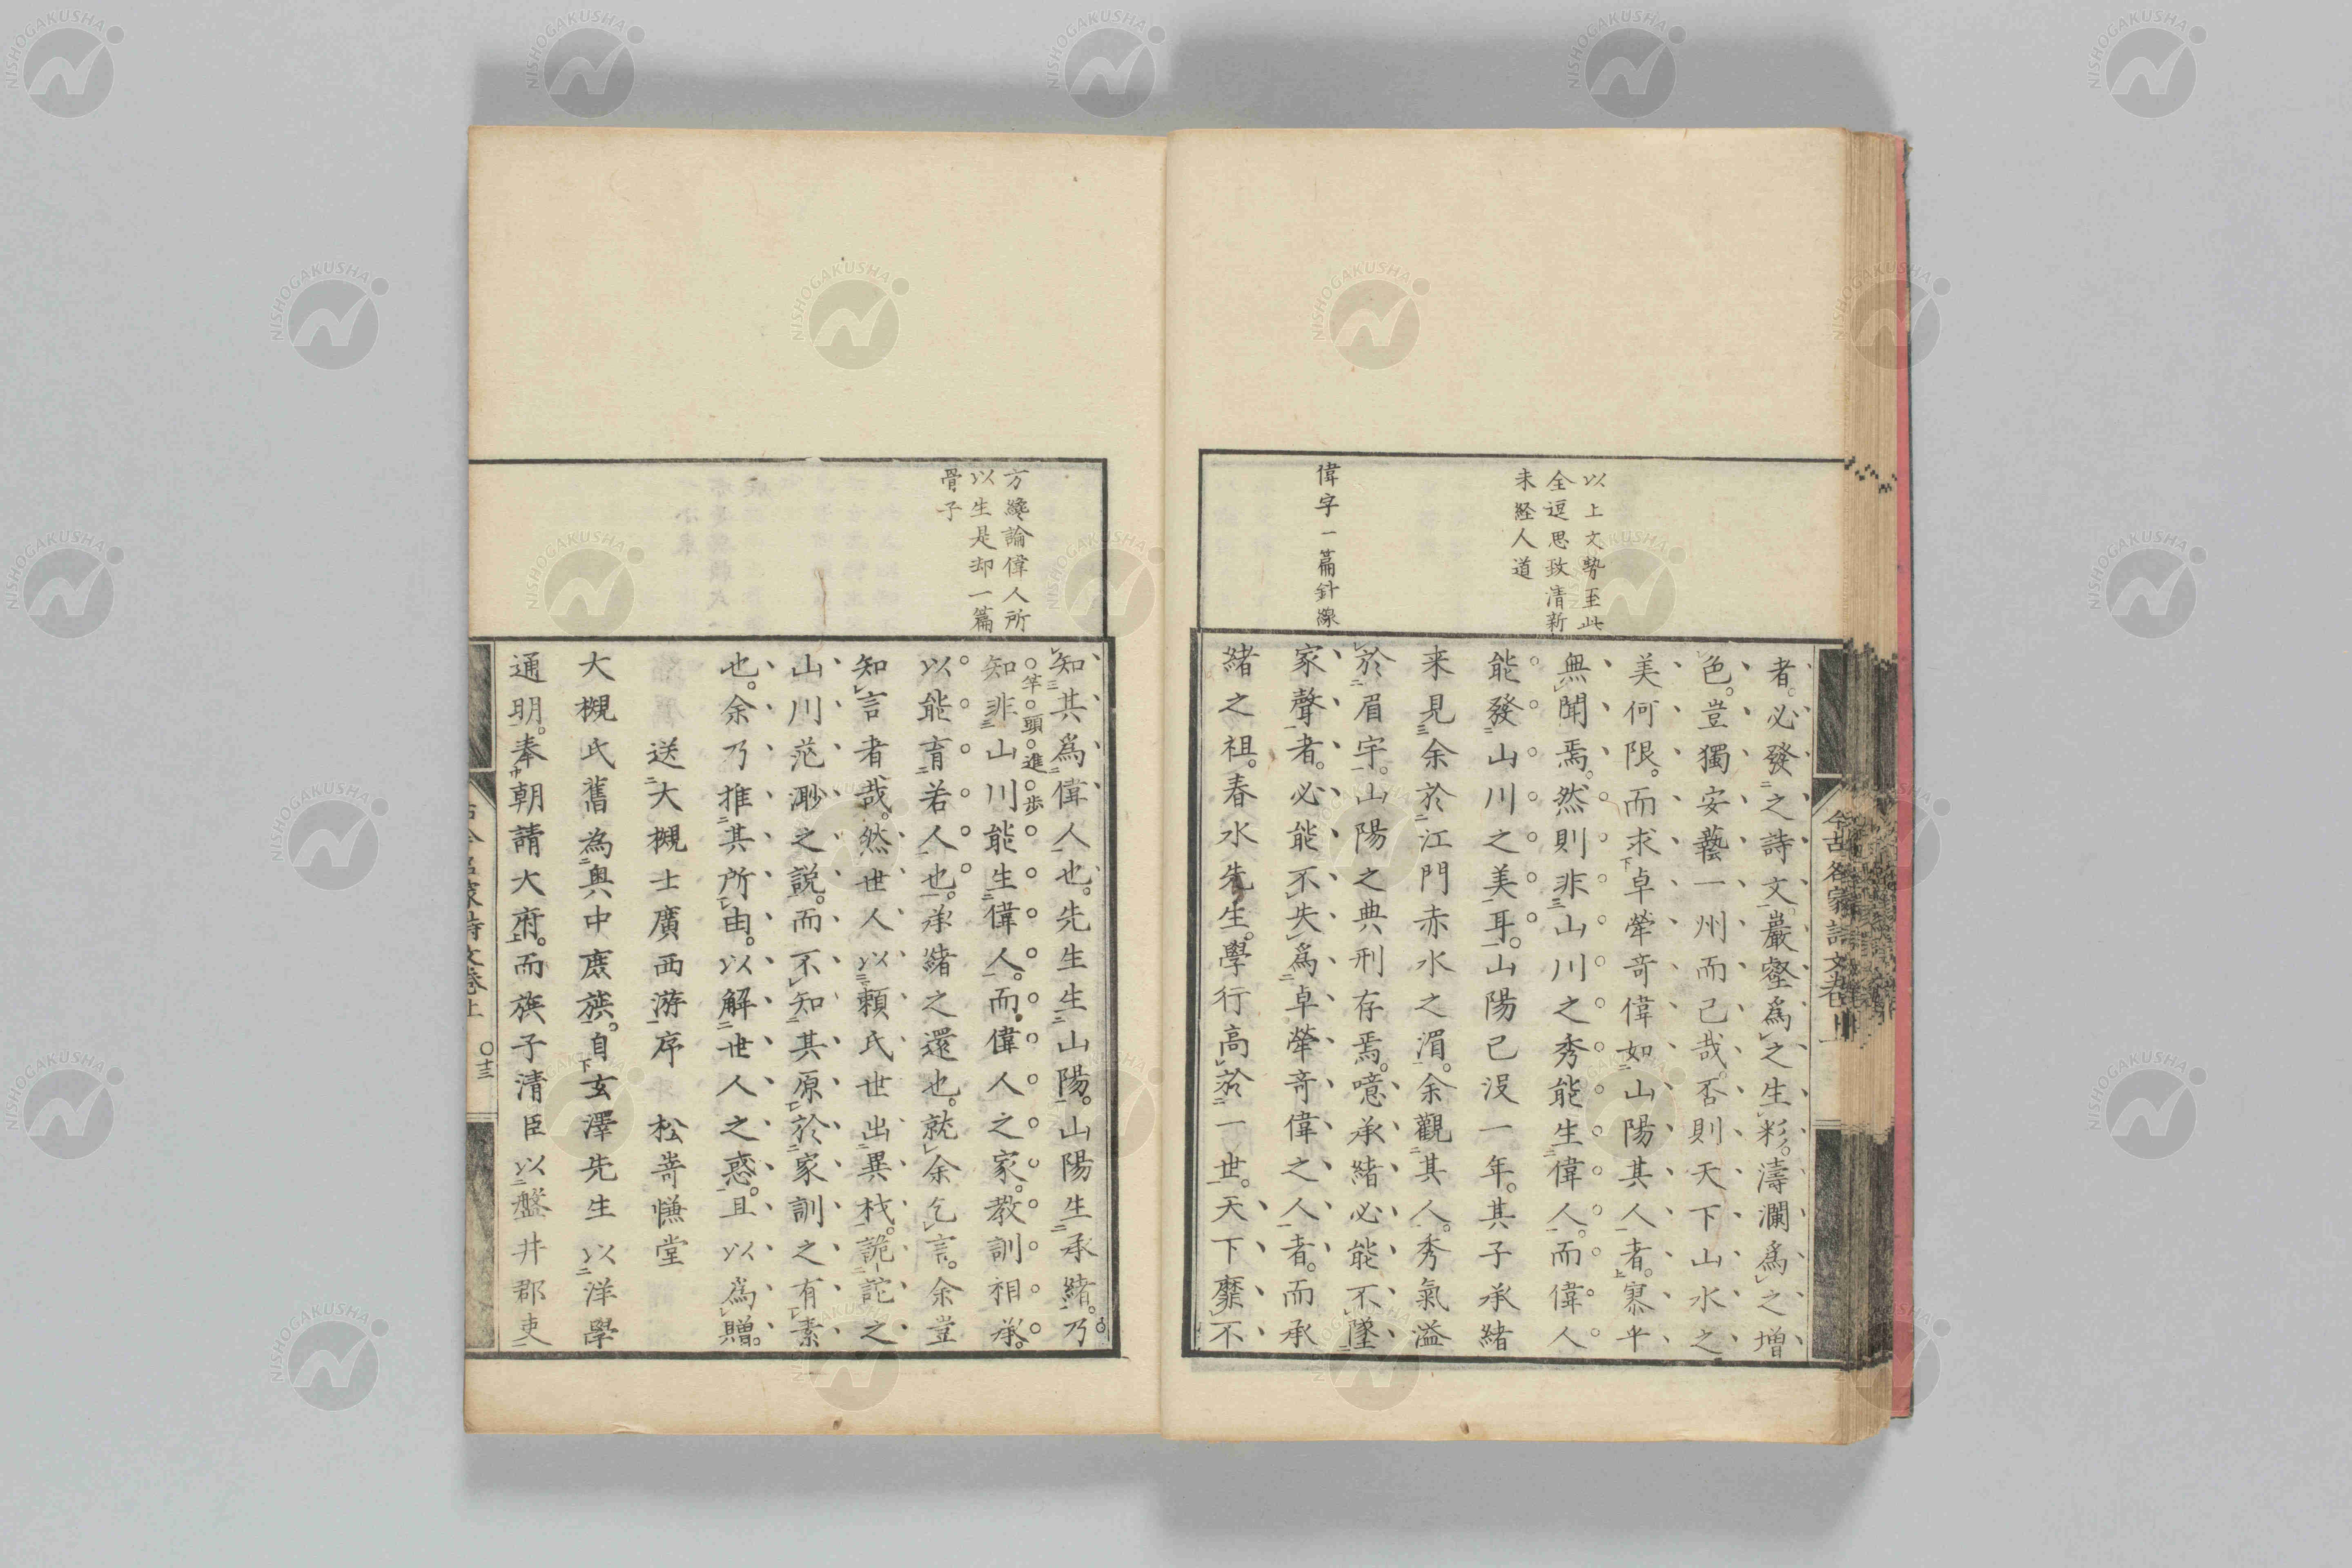 以上文勢至此
全逗思致清新
未経人道
偉字一篇針線
者。必發之詩文。巖壑爲之生彩。濤瀾爲之増
色。豈獨安藝一州而已哉。否則天下山水之
美何限。而求卓犖奇偉如山陽其人者。寥乎
無聞焉。然則非山川之秀能生偉人。而偉人
能發山川之美耳。山陽已没一年。其子承緒
来見余於江門赤水之湄。余觀其人。秀氣溢
於眉宇。山陽之典刑存焉。噫承緒必能不墜
家聲者。必能不失爲卓犖奇偉之人者。而承
緒之祖。春水先生。學行高於一世。天下靡不
方纔論偉人所
以生是却一篇
骨子
知其爲偉人也。先生生山陽。山陽生承緒。乃
竿頭進歩
知非山川能生偉人。而偉人之家。教訓相承。
以能育若人也。承緒之還也。就余乞言。余豈
知言者哉。然世人以頼氏世出異材。詭詫之
山川茫渺之説。而不知其原於家訓之有素
也。余乃推其所由。以解世人之惑。且以爲贈。
送大槻士廣西游序 松嵜慊堂
大槻氏舊為奥中庶族。自玄澤先生以洋學
通明。奉朝請大府。而族子清臣以盤井郡吏
十三
NISHOGAKUSHA